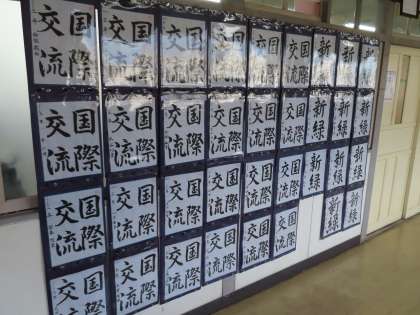 国際
交流
国際
交流
国際
交流
国際
交流
国際
交流
国際
交流
新緑
新緑
新緑
国際
交流
国際
交流
国際
交流
国際
交流
国際
交流
国際
交流
新緑
新緑
新緑
国際
交流
国際
交流
国際
交流
国際
交流
国際
交流
国際
交流
新緑
新緑
新緑
国際
交流
国際
交流
国際
交流
国際
交流
国際
交流
国際
交流
新緑
新緑
国際
交流